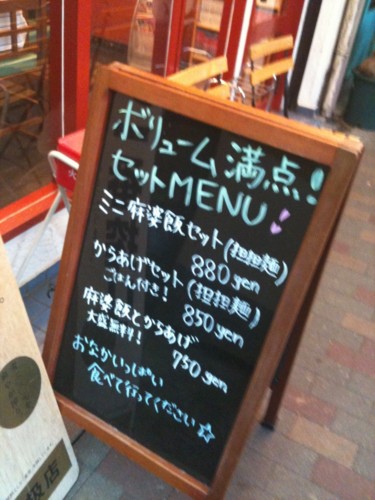 ボリューム満点!
セットMENU!
ミニ麻婆飯セット(担担麺)
880yen
からあげセット(担担麺)
ごはん付き! 850yen
麻婆飯とからあげ
大盛無料! 750yen
おなかいっぱい
食べて行ってください☆
扱店